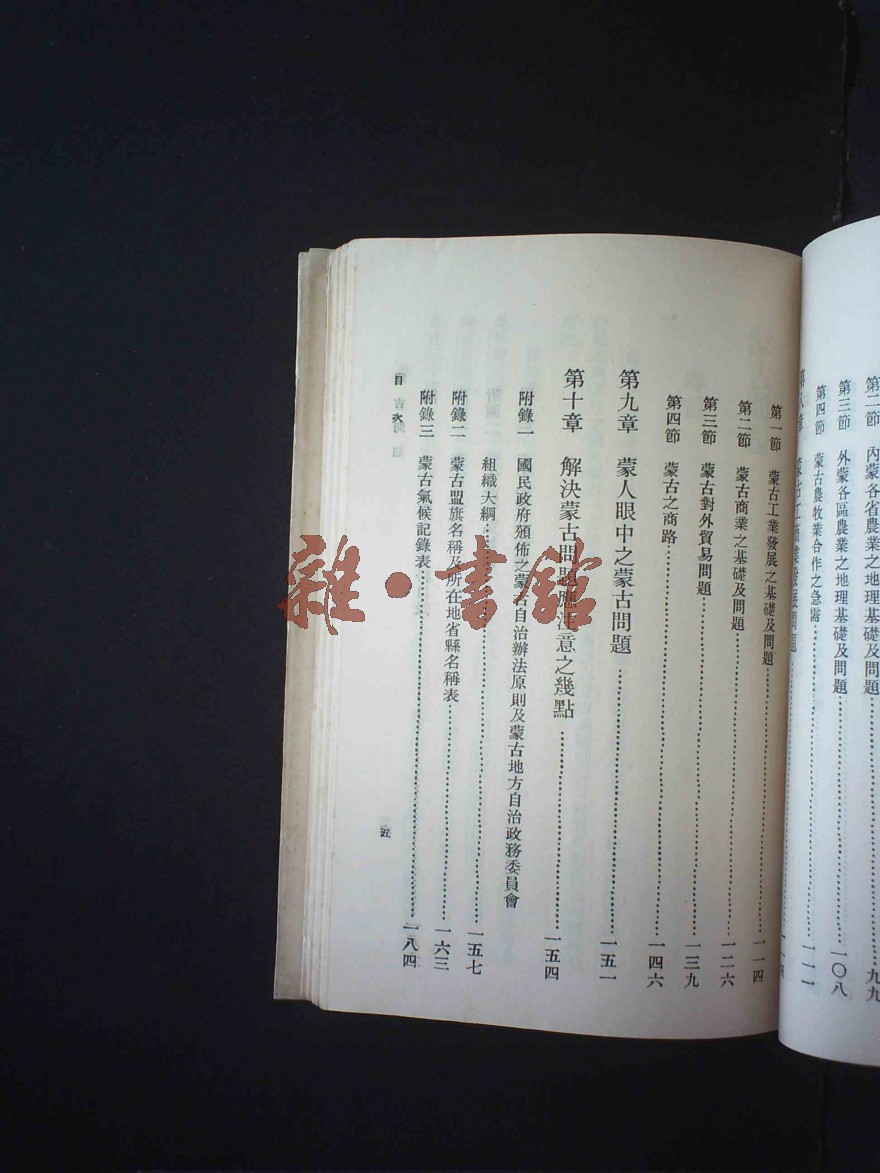 第二節　內蒙各省農業之地理基礎及問題……九九
第三節　外蒙各區農業之地理基礎及問題……一〇八
第四節　蒙古農牧業合作之急需……一一一
第八章　蒙古工商業發展問題……一一四
第一節　蒙古工業發展之基礎及問題……一一四
第二節　蒙古商業之基礎及問題……一二六
第三節　蒙古對外貿易問題……一三九
第四節　蒙古之商路……一四六
第九章　蒙人眼中之蒙古問題……一五一
第十章　解決蒙古問題應注意之幾點……一五四
附錄一　國民政府頒佈之蒙古自治辦法原則及蒙古地方自治政務委員會
組織大綱……一五七
附錄二　蒙古盟旗名稱及所在地省縣名稱表……一六三
附錄三　蒙古氣候記錄表……一八四
目次
五
雜·書館